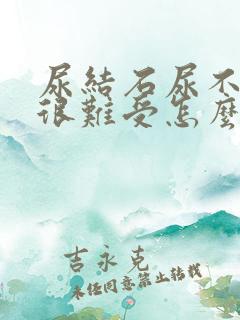 尿結石尿不
很難受怎麼
吉永克
未任同意禁止转载